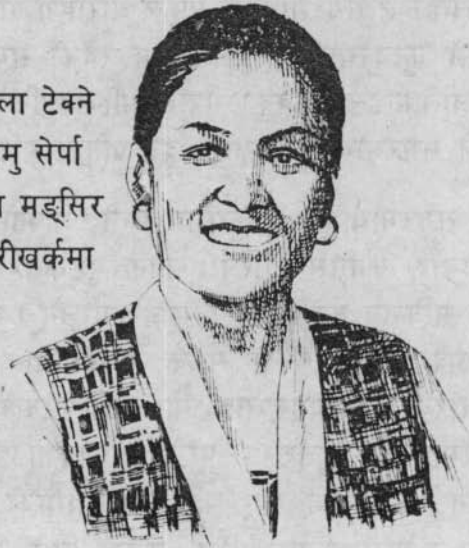 ला टेक्ने
मु सेर्पा
मङ्सिर
रीखर्कमा